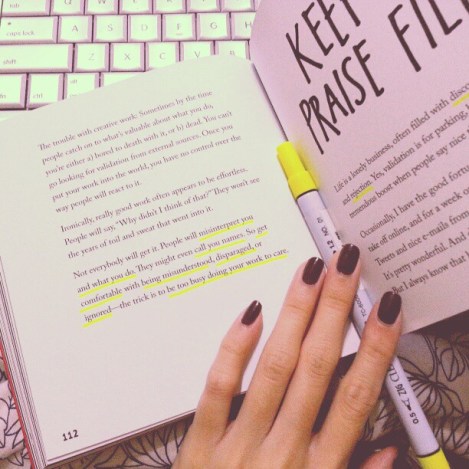 caps lock
shift
The trouble with creative work: Sometimes by the time
people catch on to what's valuable about what you do,
you're either a) bored to death with it, or b) dead. You can't
go looking for validation from external sources. Once you
put your work into the world, you have no control over the
way people will react to it.
Ironically, really good work often appears to be effortless.
People will say, "Why didn't I think of that?" They won't see
the years of toil and sweat that went into it.
Not everybody will get it. People will misinterpret you
and what you do. They might even call you names. So get
comfortable with being misunderstood, disparaged, or
ignored—the trick is to be too busy doing your work to care.
112
KEEP
PRAISE FIL
Life is a lonely business, often filled with disco
and rejection. Yes, validation is for parking, b
tremendous boost when people say nice
Occasionally, I have the good fortun
take off online, and for a week o
Tweets and nice e-mails from
It's pretty wonderful. And
But I always know that